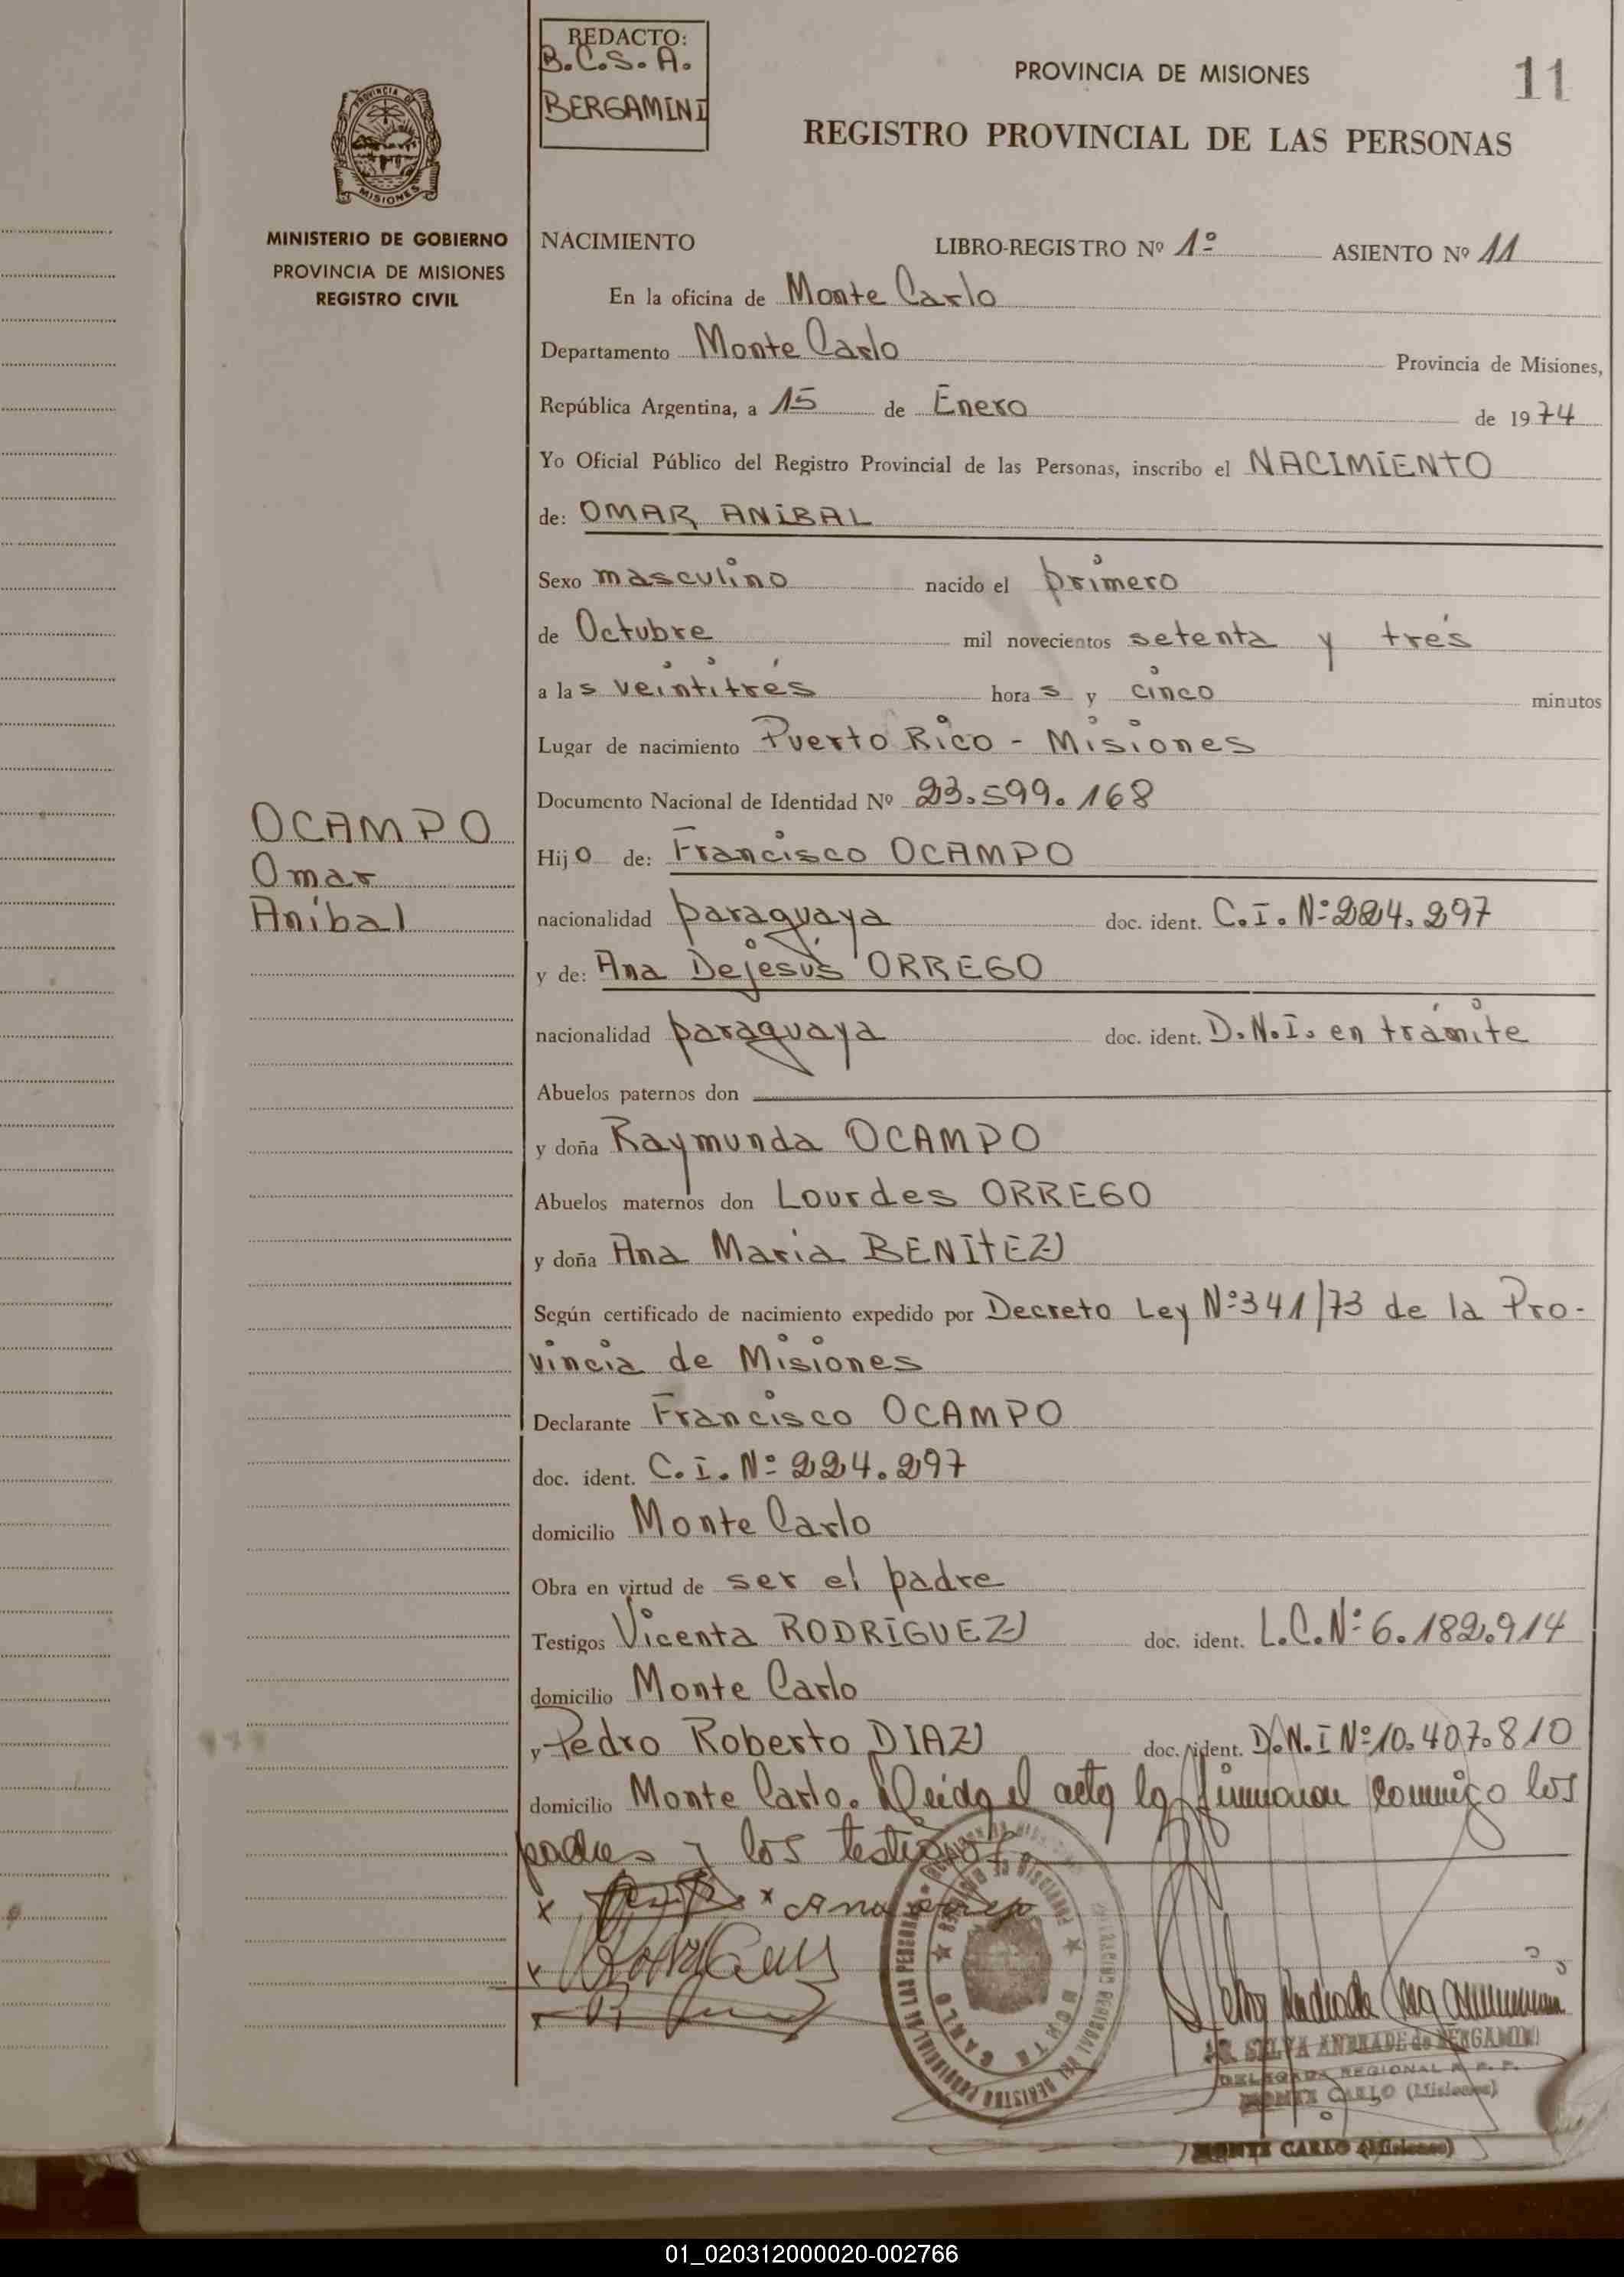 REDACTO:
B.C.S.A.
BERGAMINI
PROVINCIA DE MISIONES
11
REGISTRO PROVINCIAL DE LAS PERSONAS
PROVINCIA DE
MISIONES
MINISTERIO DE GOBIERNO
PROVINCIA DE MISIONES
REGISTRO CIVIL
NACIMIENTO LIBRO-REGISTRO Nº 1º ASIENTO Nº 11
En la oficina de Monte Carlo
Departamento Monte Carlo Provincia de Misiones,
República Argentina, a 15 de Enero de 1974
Yo Oficial Público del Registro Provincial de las Personas, inscribo el NACIMIENTO
de: OMAR ANIBAL
Sexo masculino nacido el primero
de Octubre mil novecientos setenta y trés
a las veintitrés horas y cinco minutos
Lugar de nacimiento Puerto Rico - Misiones
Documento Nacional de Identidad Nº 23.599.168
OCAMPO
Omar
Anibal
Hijo de: Francisco OCAMPO
nacionalidad paraguaya doc. ident. C.I. Nº 224.297
y de: Ana Dejesús ORREGO
nacionalidad paraguaya doc. ident. D.N.I. en trámite
Abuelos paternos don
y doña Raymunda OCAMPO
Abuelos maternos don Lourdes ORREGO
y doña Ana Maria BENITEZ
Según certificado de nacimiento expedido por Decreto Ley Nº 341/73 de la Pro-
vincia de Misiones
Declarante Francisco OCAMPO
doc. ident. C.I. Nº 224.297
domicilio Monte Carlo
Obra en virtud de ser el padre
Testigos Vicenta RODRIGUEZ doc. ident. L.C. Nº 6.182.914
domicilio Monte Carlo
y Pedro Roberto DIAZ doc. ident. D.N.I Nº 10.407.810
domicilio Monte Carlo. Leida el acta la firmaron conmigo los
padres y los testigos
x x Ana orrego
x
x
REGISTRO PROVINCIAL DE LAS PERSONAS
PROVINCIA DE MISIONES
MONTE CARLO
SELVA ANDRADE de BERGAMINI
DELEGADA REGIONAL R. P. P.
MONTE CARLO (Misiones)
MONTE CARLO (Misiones)
01_020312000020-002766